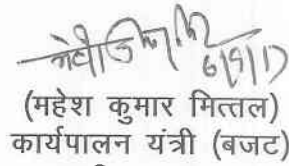 6/9/17
(महेश कुमार मित्तल)
कार्यपालन यंत्री (बजट)